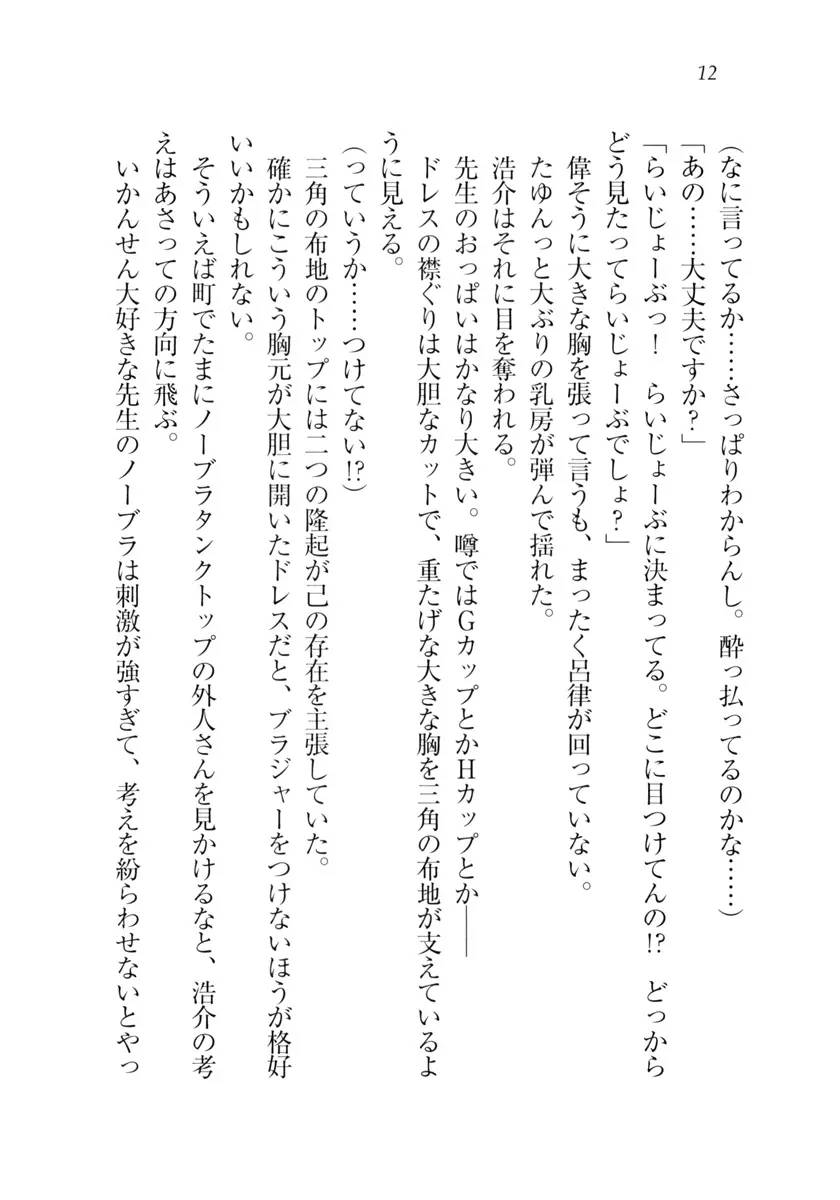 12
(なに言ってるか……さっぱりわからんし。酔っ払ってるのかな……)
「あの……大丈夫ですか？」
「らいじょーぶっ！　らいじょーぶに決まってる。どこに目つけてんの!?　どっから
どう見たってらいじょーぶでしょ？」
　偉そうに大きな胸を張って言うも、まったく呂律が回っていない。
　たゆんっと大ぶりの乳房が弾んで揺れた。
　浩介はそれに目を奪われる。
　先生のおっぱいはかなり大きい。噂ではＧカップとかＨカップとか――
　ドレスの襟ぐりは大胆なカットで、重たげな大きな胸を三角の布地が支えているよ
うに見える。
(っていうか……つけてない!?)
　三角の布地のトップには二つの隆起が己の存在を主張していた。
　確かにこういう胸元が大胆に開いたドレスだと、ブラジャーをつけないほうが格好
いいかもしれない。
　そういえば町でたまにノーブラタンクトップの外人さんを見かけるなと、浩介の考
えはあさっての方向に飛ぶ。
　いかんせん大好きな先生のノーブラは刺激が強すぎて、考えを紛らわせないとやっ